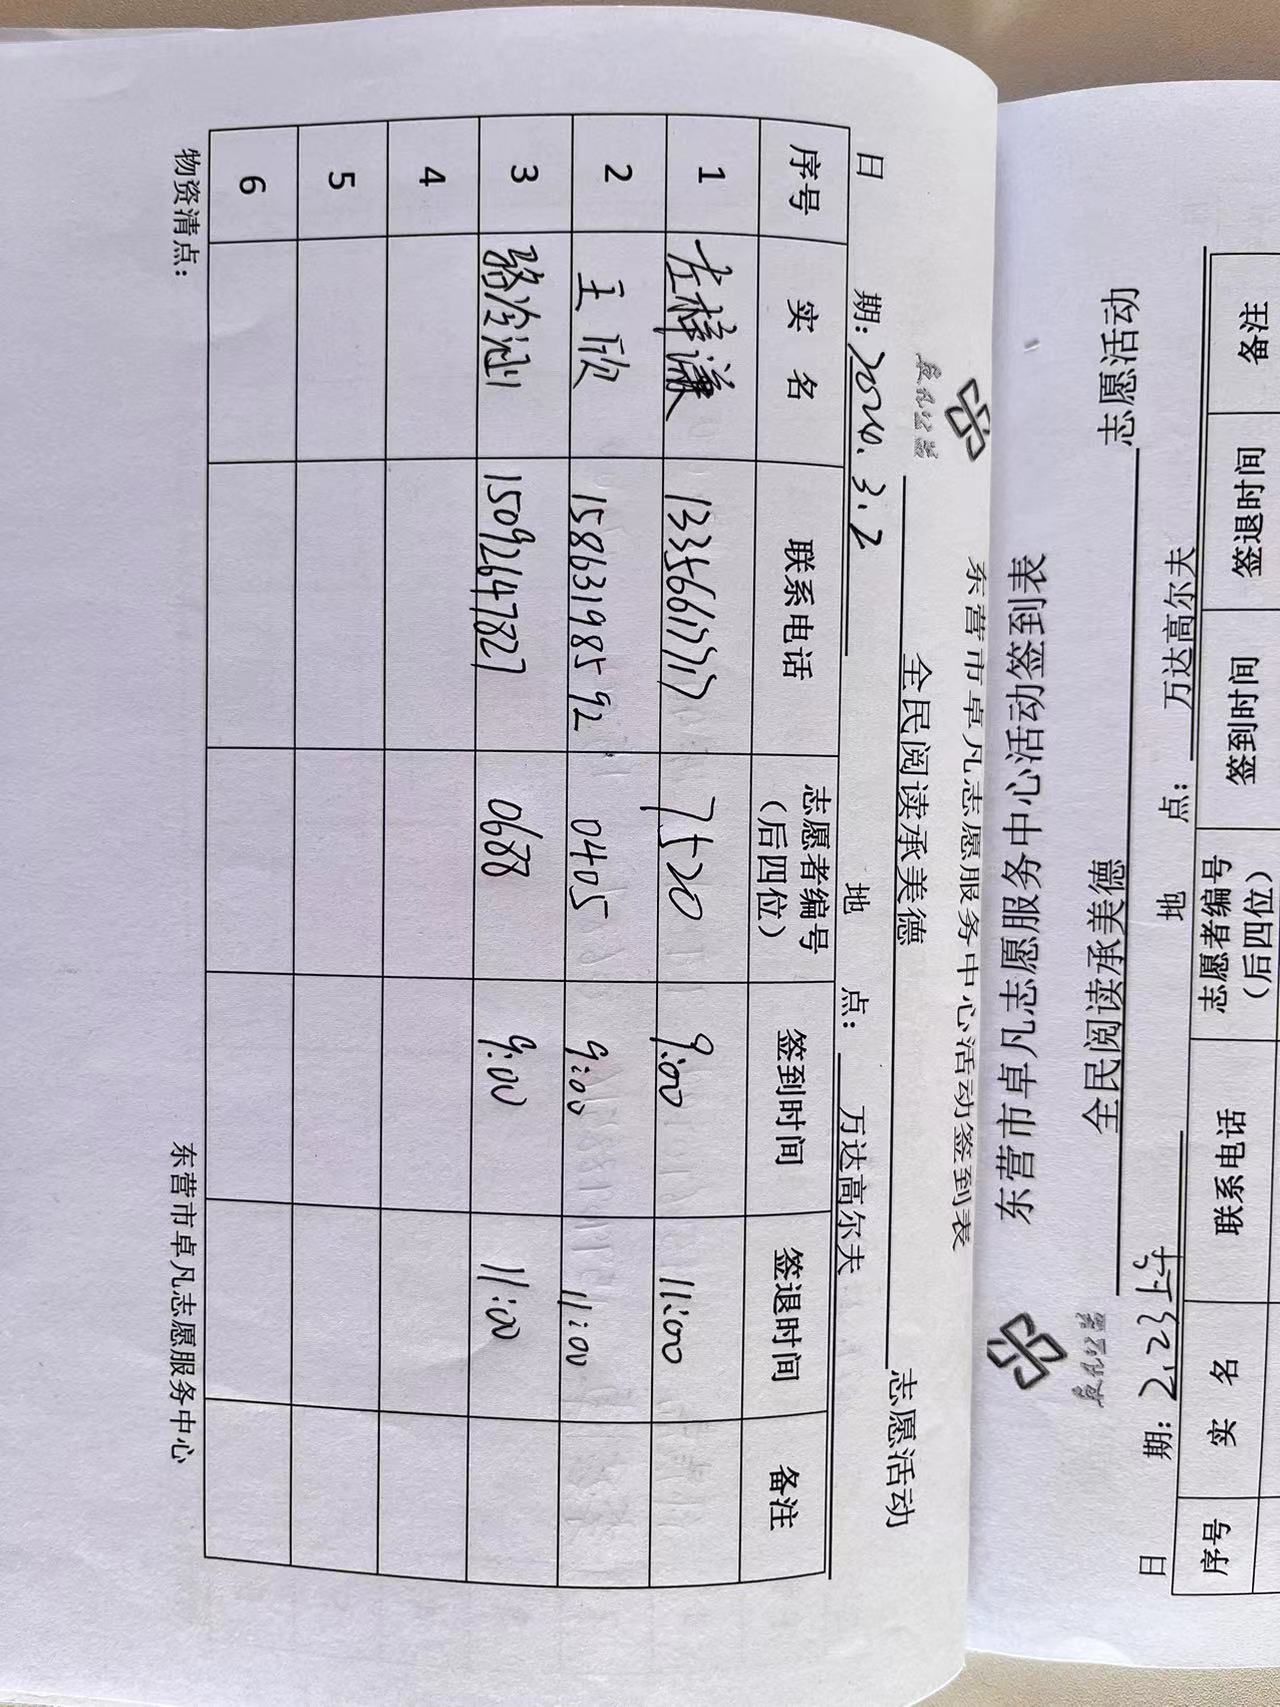 东营市卓凡志愿服务中心活动签到表
全民阅读承美德 志愿活动
日 期：2024.3.2 地 点： 万达高尔夫
序号 实 名 联系电话 志愿者编号（后四位） 签到时间 签退时间 备注
1 左梓谦 7520 9:00 11:00
2 王欣 15863198592 0405 9:00 11:00
3 骆冷涵 15092647827 0688 9:00 11:00
4
5
6
物资清点： 东营市卓凡志愿服务中心
东营市卓凡志愿服务中心活动签到表
全民阅读承美德 志愿活动
日 期：2.23上午 地 点： 万达高尔夫
序号 实 名 联系电话 志愿者编号（后四位） 签到时间 签退时间 备注